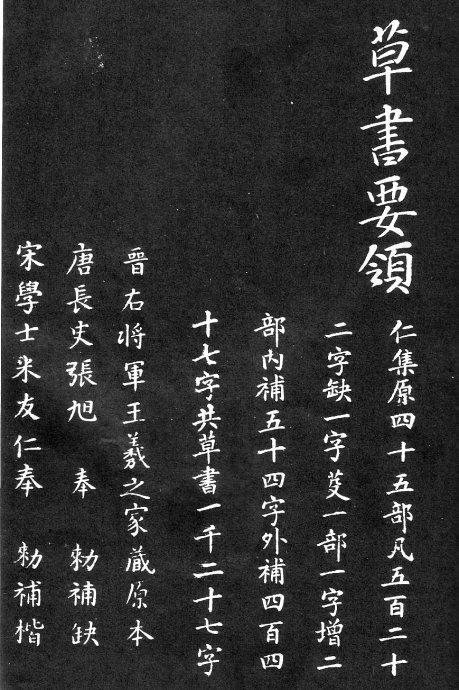 草書要領
仁集原四十五部凡五百二十
二字缺一字芟一部一字增二
部内補五十四字外補四百四
十七字共草書一千二十七字
晉右将軍王羲之家藏原本
唐長史張旭 奉 勑補缺
宋學士米友仁奉 勑補楷